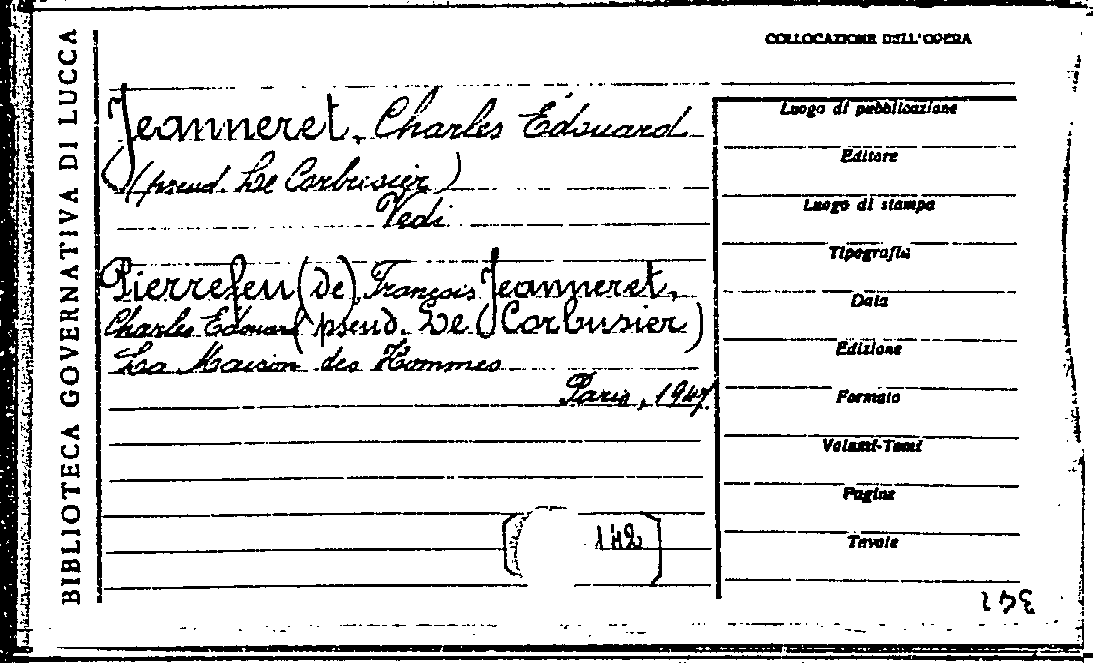 BIBLIOTECA GOVERNATIVA DI LUCCA
COLLOCAZIONE DELL'OPERA
Jeanneret, Charles Edouard
(pseud. Le Corbusier)
Vedi
Pierrefeu (De), François Jeanneret,
Charles Edouard (pseud. Le Corbusier)
La Maison des Hommes
Paris, 1947.
142
Luogo di pubblicazione
Editore
Luogo di stampa
Tipografia
Data
Edizione
Formato
Volumi-Tomi
Pagine
Tavole